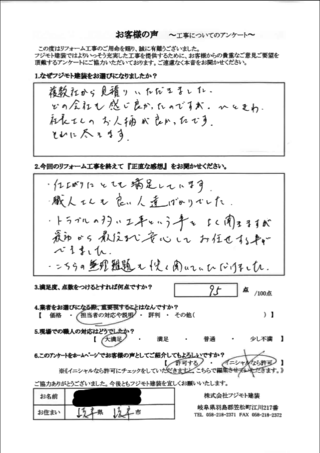 お客様の声 ～工事についてのアンケート～
この度はリフォーム工事のご用命を賜り、誠に有難うございました。
フジモト建装ではよりいっそう充実した工事を提供するために、お客様からの貴重なご意見ご要望を
頂戴するアンケートにご協力いただいております。ご遠慮なく本音をお聞かせください。
1.なぜフジモト建装をお選びになりましたか？
複数社から見積りいただきました。
どの会社も感じ良かったのですが、ひときわ
社長さんのお人柄が良かったです。
2.今回のリフォーム工事を終えて『正直な感想』をお聞かせください。
・仕上がりにとても満足しています。
・職人さんも良い人達ばかりでした。
・トラブルの多い工事という事をよく聞きますが
最初から最後まで安心してお任せする事が
できました。
・こちらの無理難題も快く聞いていただけました。
3.満足度、点数をつけるとすれば何点ですか？
95 点 /100点
4.業者をお選びになる際、重要視することはなんですか？
【 価格 ・ 担当者の対応や説明 ・ 評判 ・ その他( ) 】
5.現場での職人の対応はどうでしたか？
【 大満足 ・ 満足 ・ 普通 ・ 少し不満 】
6.このアンケートをホームページでお客様の声としてご紹介してもよろしいですか？
【 許可する ・ イニシャルなら許可 】
※《イニシャルなら許可にチェックをしていただきますと、こちらで編集させていただきます。》
ご協力ありがとうございました。今後ともフジモト建装を宜しくお願いいたします。
お名前
お住まい 岐阜県 岐阜市
株式会社フジモト建装
岐阜県羽島郡笠松町江川217番
TEL 058-218-2371 FAX 058-218-2372